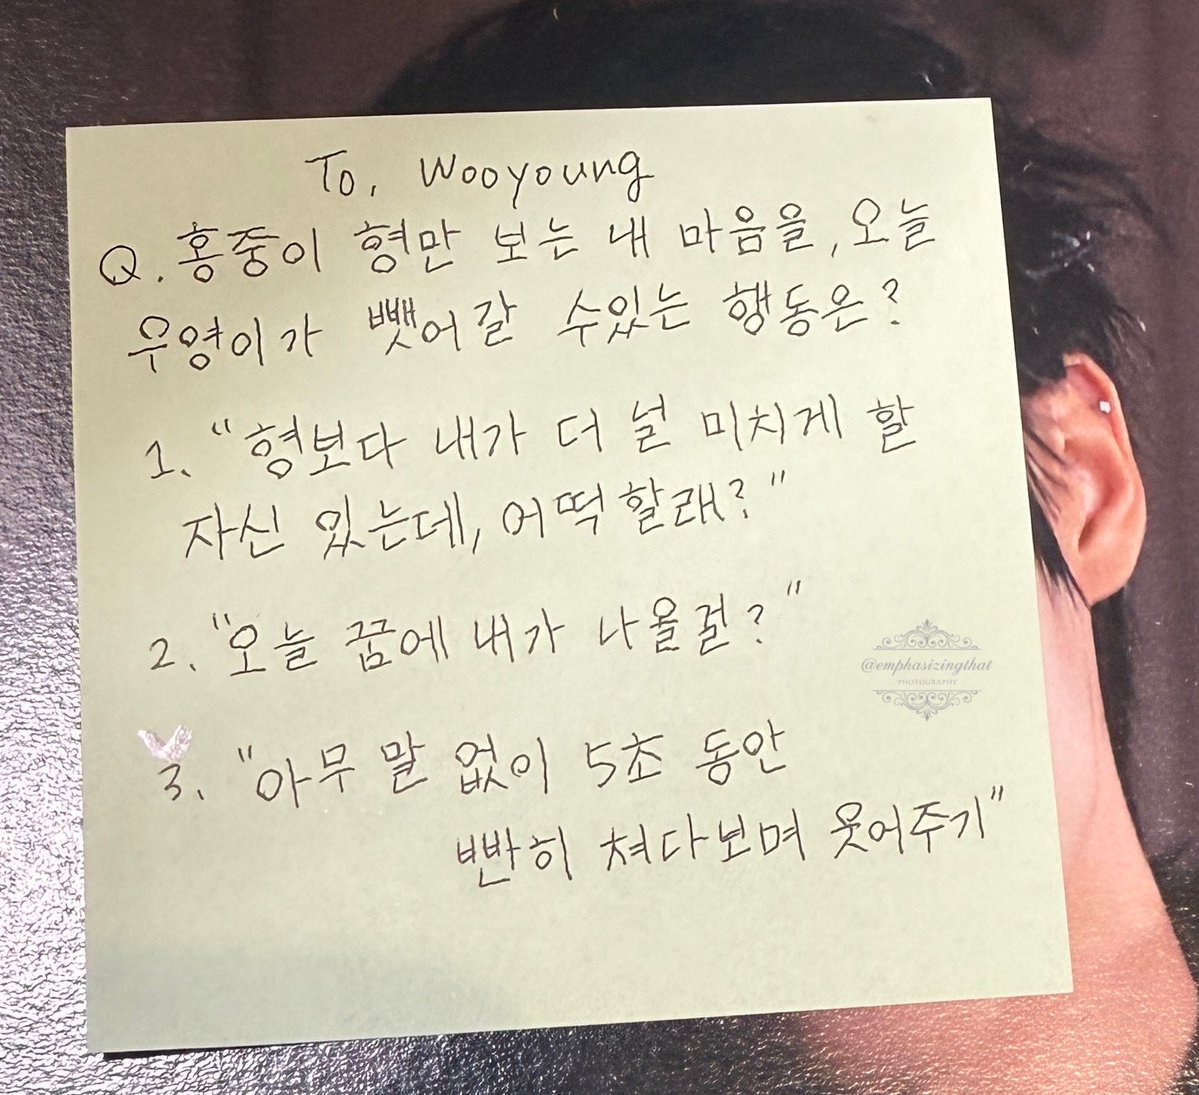 To. Wooyoung
Q. 홍중이 형만 보는 내 마음을, 오늘
우영이가 뺏어갈 수있는 행동은?
1. "형보다 내가 더 널 미치게 할
자신 있는데, 어떡할래?"
2. "오늘 꿈에 내가 나올걸?"
@emphasizingthat
PHOTOGRAPHY
3. "아무 말 없이 5초 동안
빤히 쳐다보며 웃어주기"